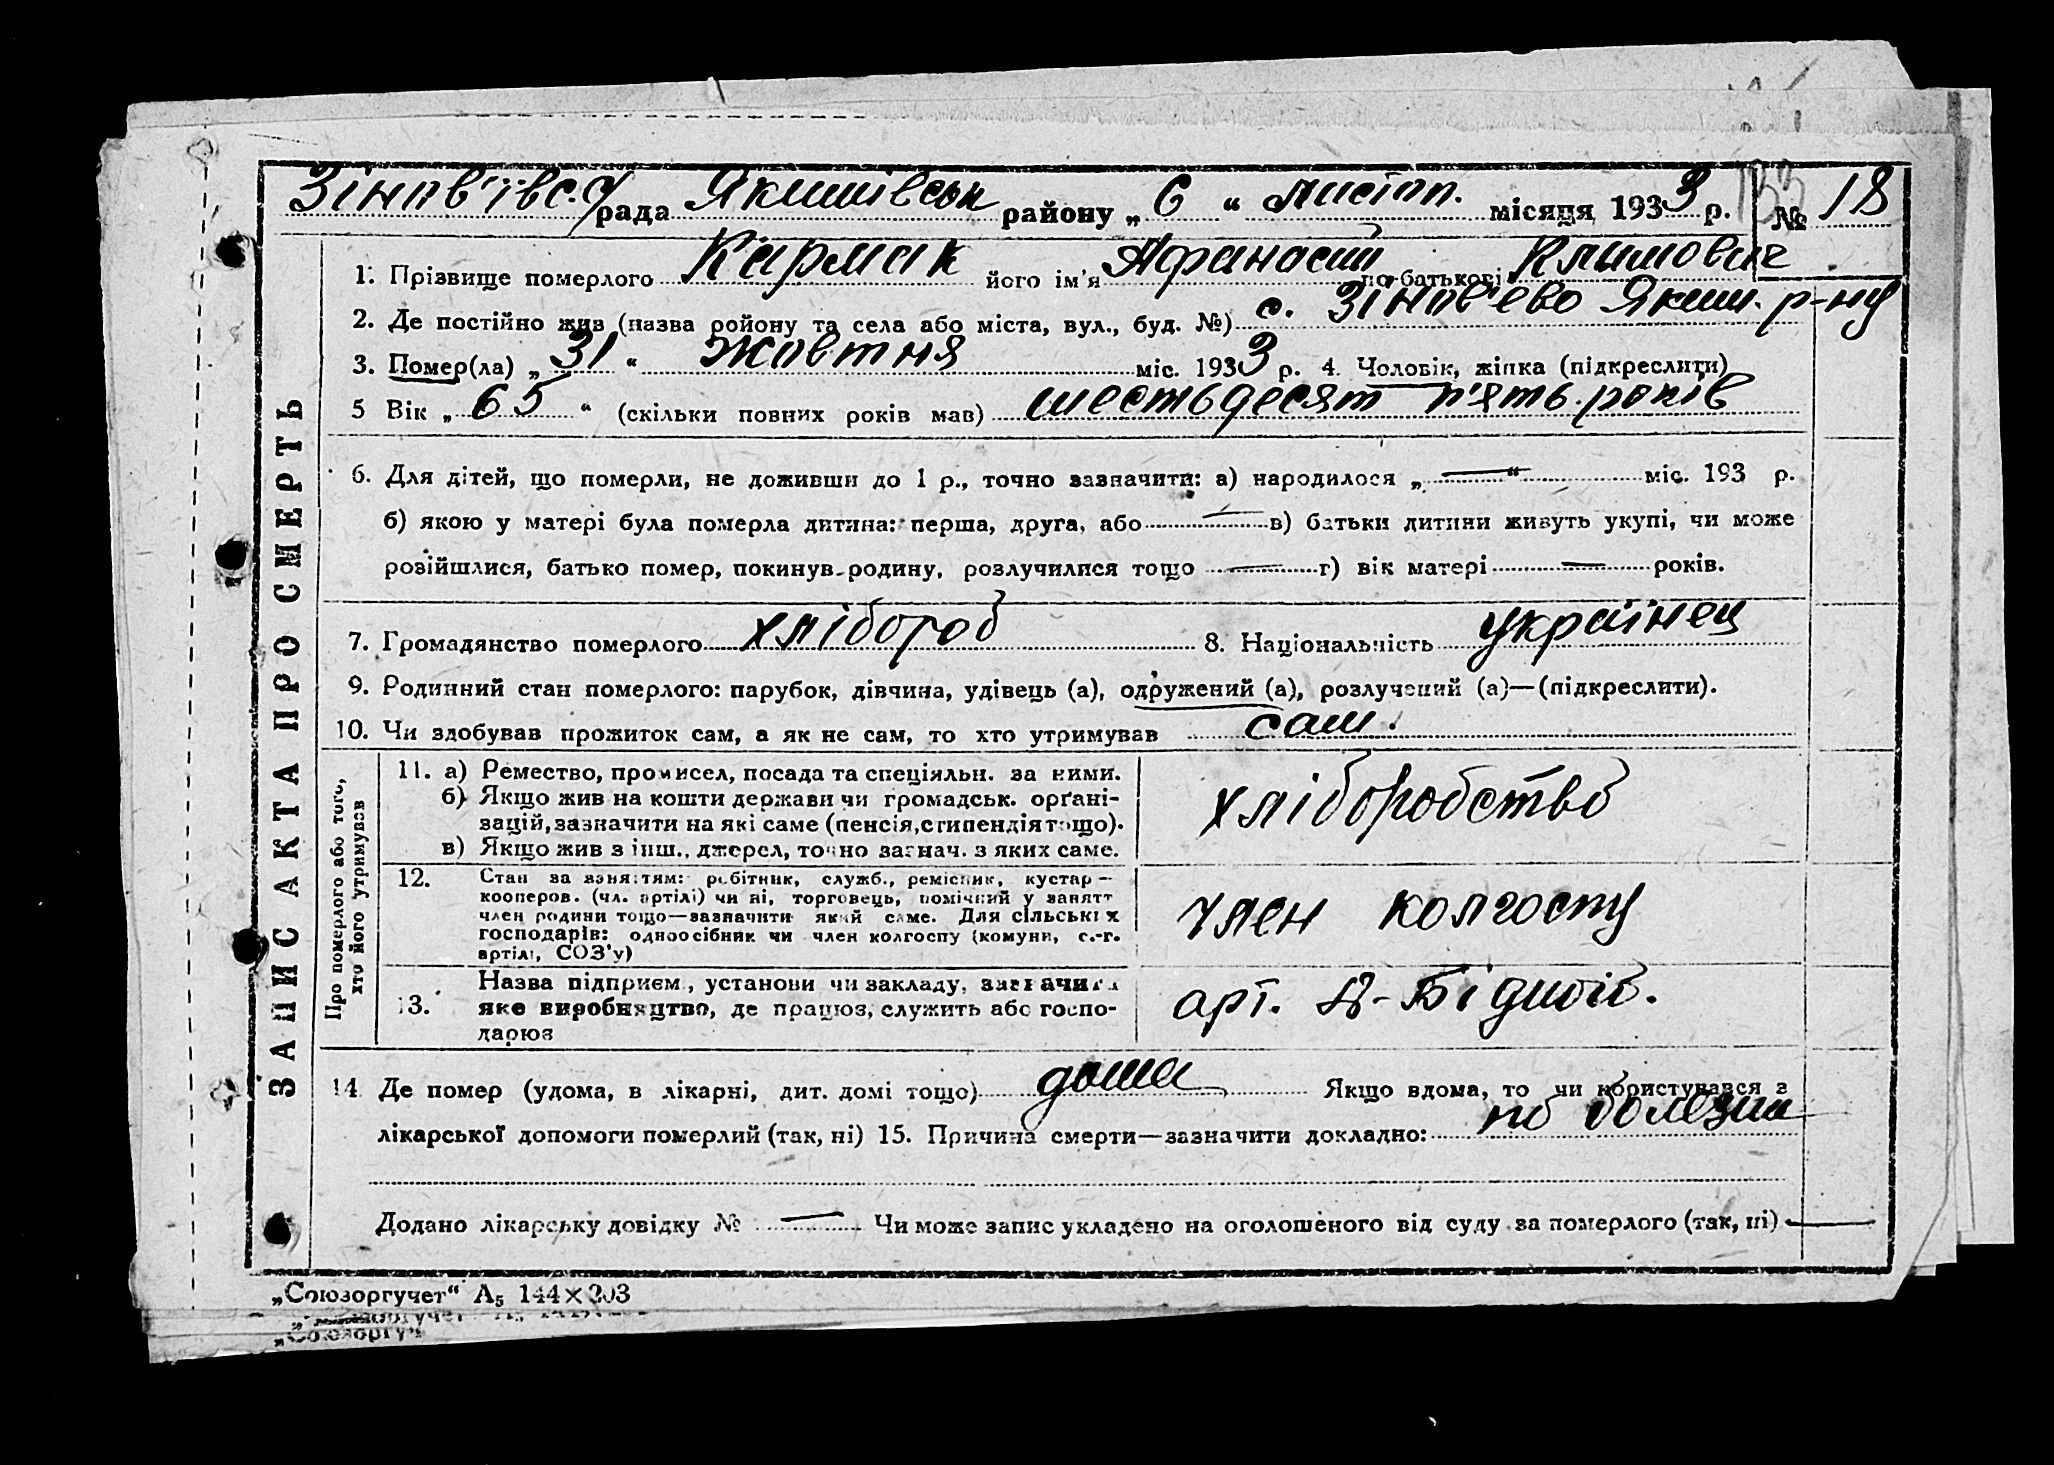 Зінов'ївс. рада Якимівськ району „ 6 “ листоп. місяця 1933 р. № 18
1. Прізвище померлого Кармак його ім'я Афанасий по-батькові Климович
2. Де постійно жив (назва ройону та села або міста, вул., буд. №) с. Зінов'ево Яким. р-ну
3. Помер(ла) „ 31 “ жовтня міс. 1933 р. 4. Чоловік, жінка (підкреслити)
5 Вік „ 65 “ (скільки повних років мав) шестьдесят п'ять років
6. Для дітей, що померли, не доживши до 1 р., точно зазначити: а) народилося „ — “ міс. 193 р.
б) якою у матері була померла дитина: перша, друга, або — в) батьки дитини живуть укупі, чи може
розійшлися, батько помер, покинув родину, розлучилися тощо — г) вік матері — років.
7. Громадянство померлого хлібороб 8. Національність українец
9. Родинний стан померлого: парубок, дівчина, удівець (а), одружений (а), розлучений (а)—(підкреслити).
10. Чи здобував прожиток сам, а як не сам, то хто утримував сам.
ЗАПИС АКТА ПРО СМЕРТЬ
Про померлого або того,
хто його утримував
11. а) Ремество, промисел, посада та спеціяльн. за ними.
б) Якщо жив на кошти держави чи громадськ. орґані-
зацій, зазначити на які саме (пенсія, стипендія тощо).
в) Якщо жив з інш., джерел, точно зазнач. з яких саме.
хліборобство
12. Стан за заняттям: робітник, служб., ремісник, кустар—
кооперов. (чл. артілі) чи ні, торговець, помічний у занятт
член родини тощо—зазначити який саме. Для сільських
господарів: одноосібник чи член колгоспу (комуни, с.-г.
артілі, СОЗ'у)
член колгоспу
13. Назва підприєм., установи чи закладу, зазначити
яке виробництво, де працюв, служить або госпо-
дарюв
арт.
14 Де помер (удома, в лікарні, дит. домі тощо) дома Якщо вдома, то чи користувався з
лікарської допомоги померлий (так, ні) 15. Причина смерти—зазначити докладно: по болезни
Додано лікарську довідку № — Чи може запис укладено на оголошеного від суду за померлого (так, ні) —
„Союзоргучет“ А5 144×203
„Союзоргуч